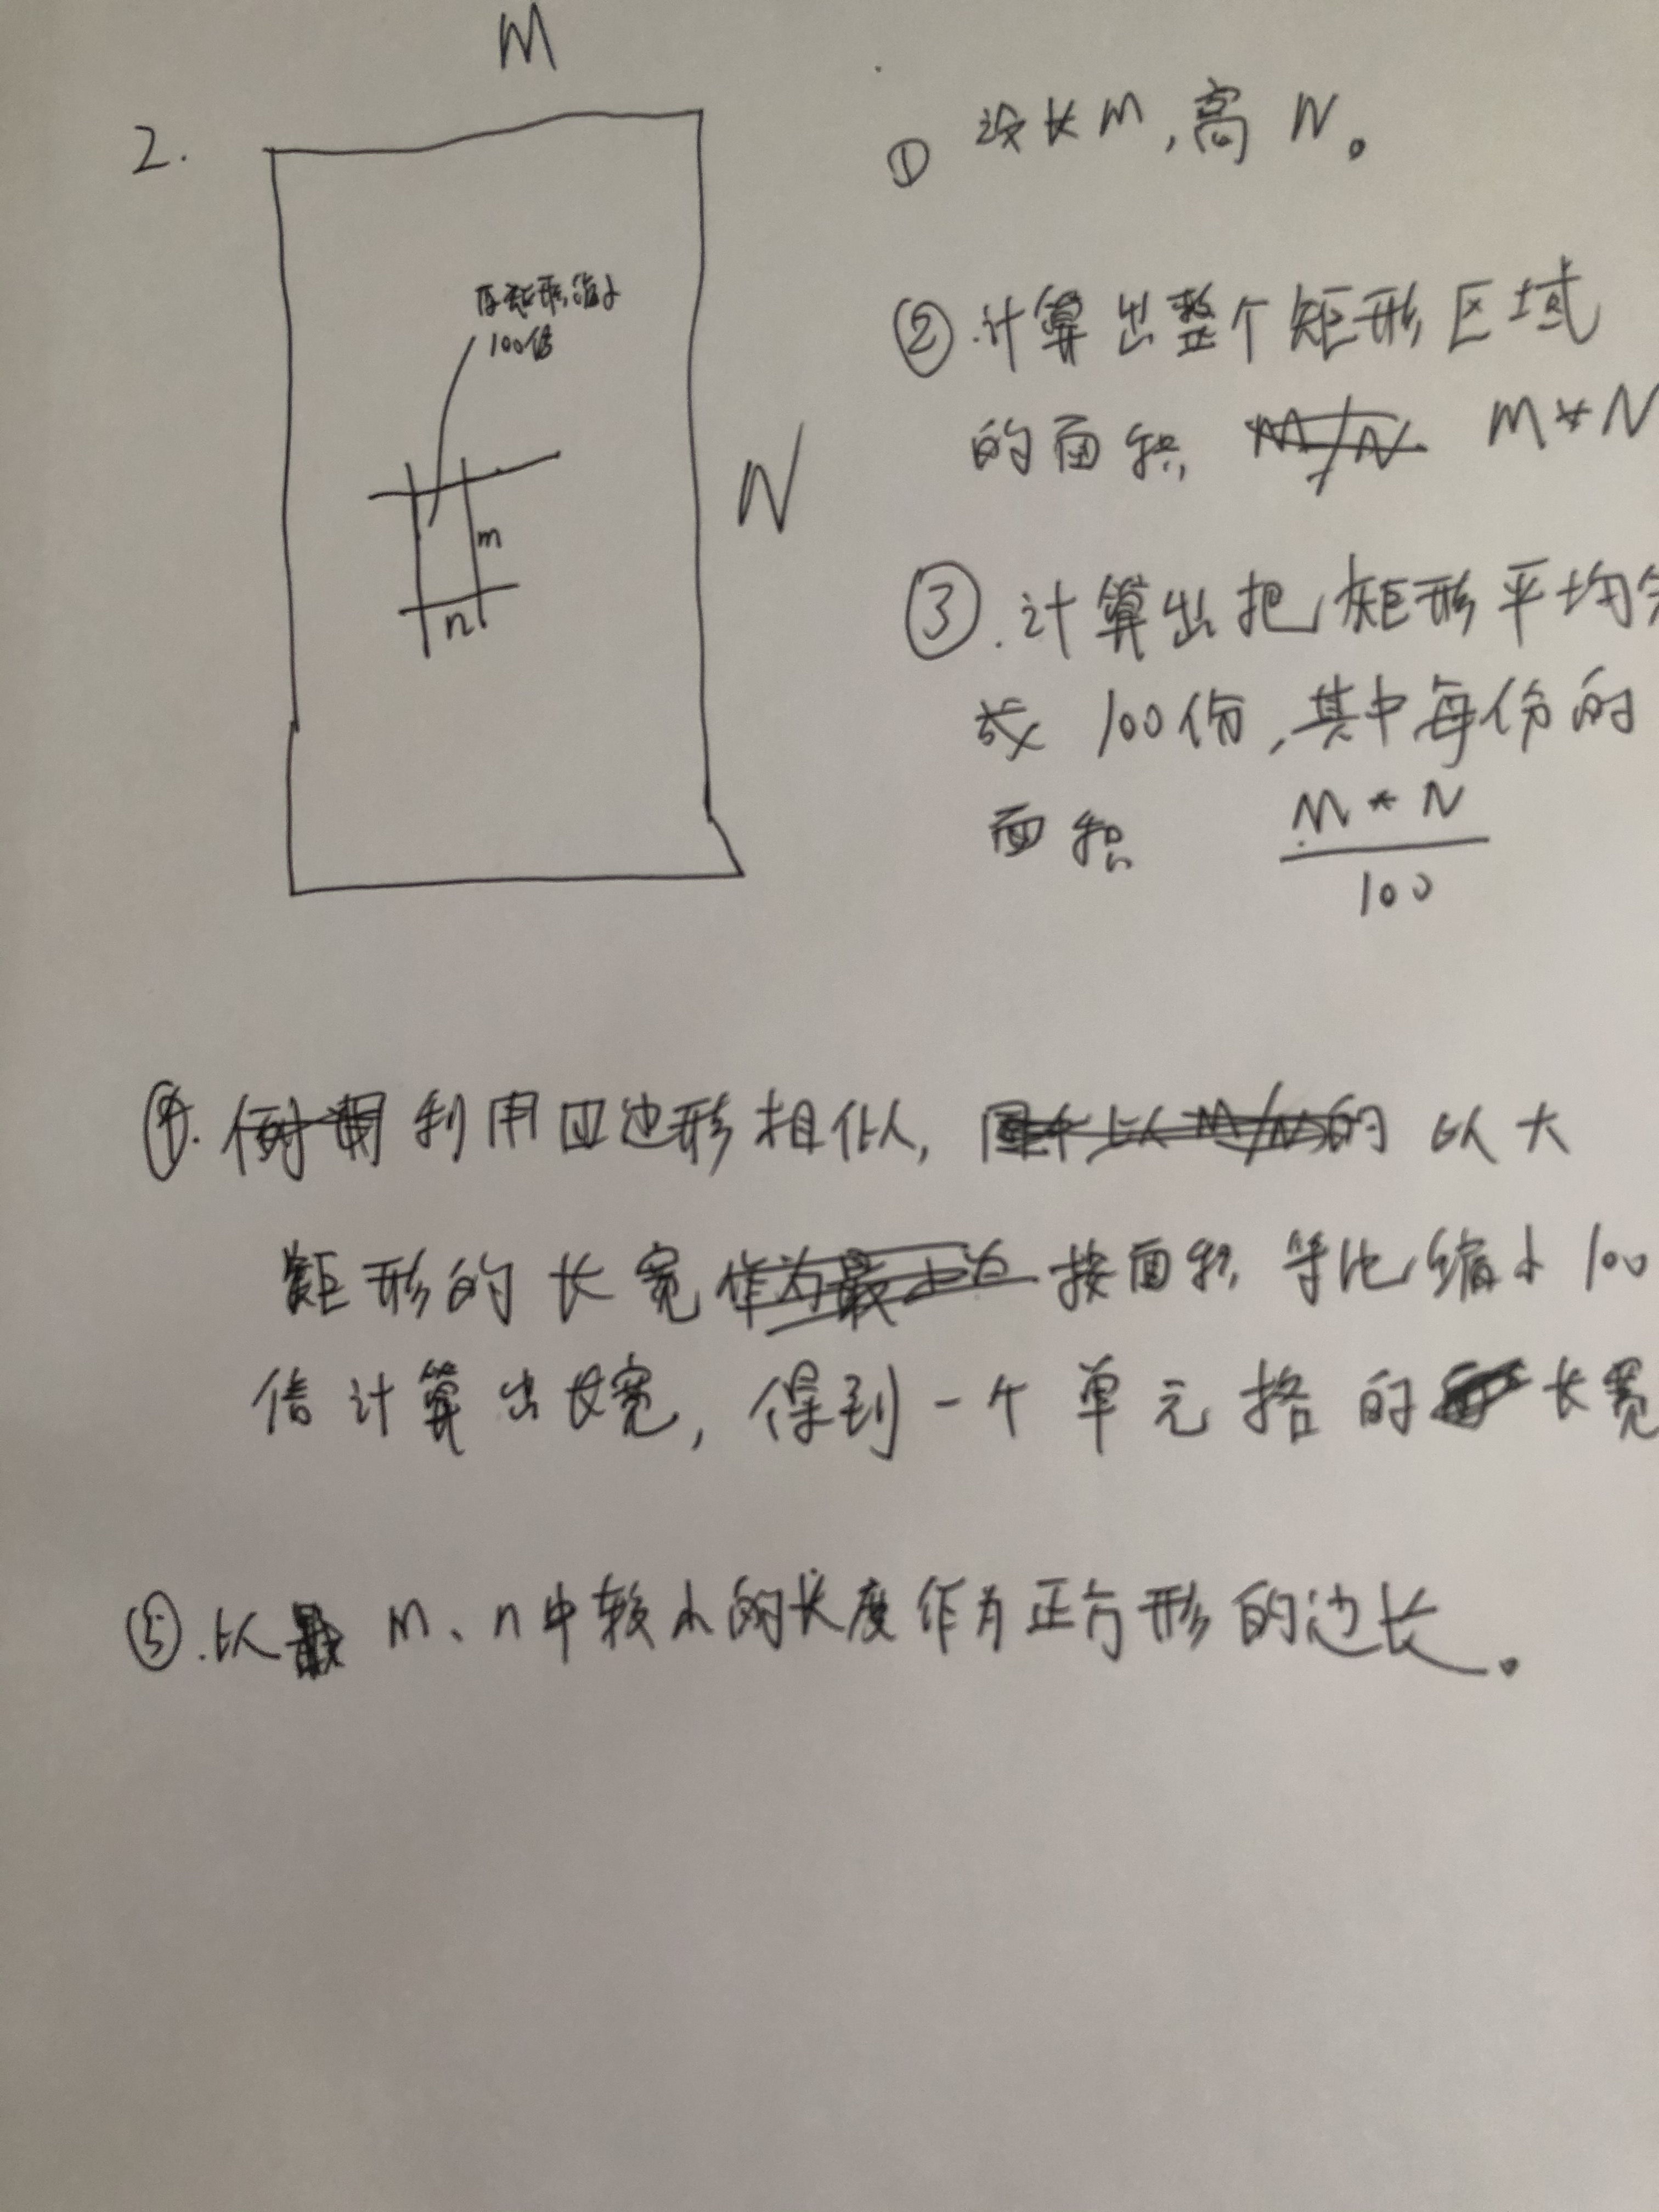 M
2.
原矩形缩小
100倍
m
n
N
① 设长M,高N。
②.计算出整个矩形区域
的面积 M/N M*N
③.计算出把矩形平均分
成100份,其中每份的
面积 M*N
100
④. 利用四边形相似, 以大
矩形的长宽 按面积等比缩小100
倍计算出长宽,得到一个单元格的长宽
⑤.以 m、n中较小的长度作为正方形的边长。